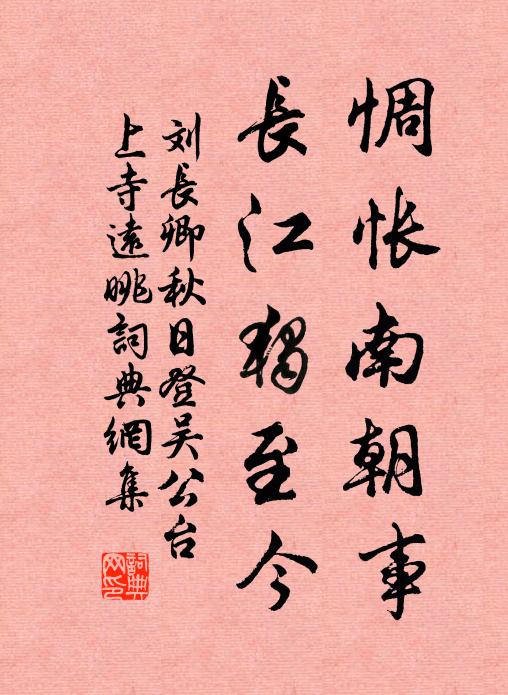 惆怅南朝事
長江獨至今
刘長卿秋日登吴公台
上寺遠眺詞典網集
詞典网印